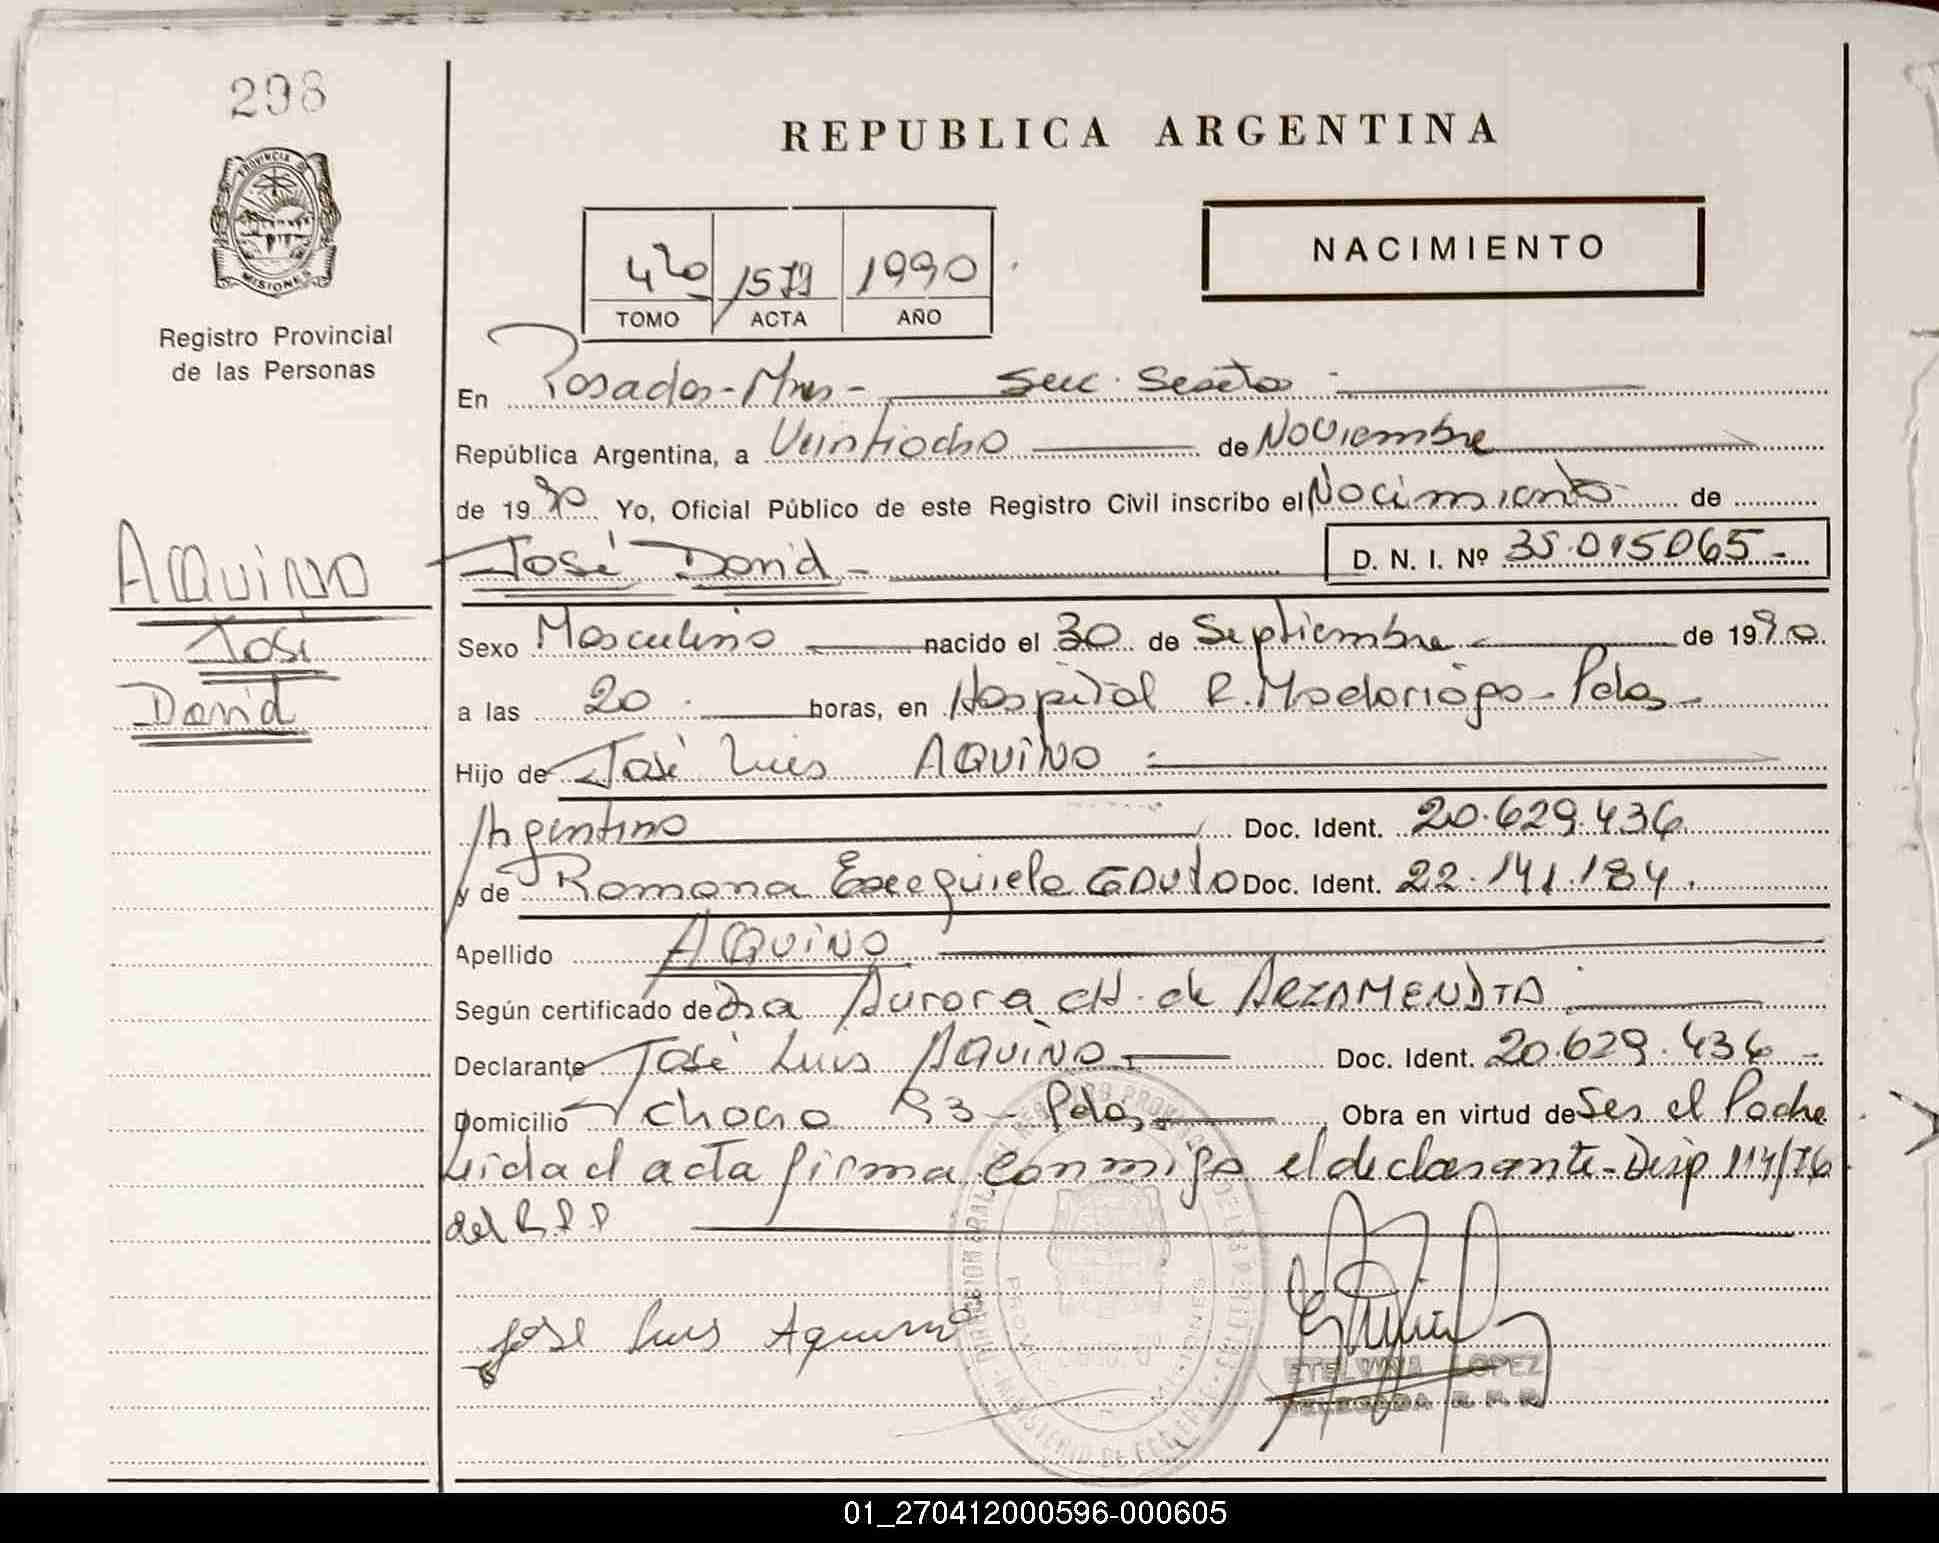 298
PROVINCIA DE
MISIONES
Registro Provincial
de las Personas
REPUBLICA ARGENTINA
NACIMIENTO
420 1579 1990
TOMO ACTA AÑO
En Posadas - Mnes - Secc. Sexta
República Argentina, a Veintiocho de Noviembre
de 1990 Yo, Oficial Público de este Registro Civil inscribo el Nacimiento de
José David - D. N. I. Nº 35.015.065 -
AQUINO
José
David
Sexo Masculino nacido el 30 de Septiembre de 1990
a las 20 horas, en Hospital R. Madariaga - Pdas -
Hijo de José Luis AQUINO
Argentino Doc. Ident. 20.629.436
y de Ramona Exequiela Doc. Ident. 22.141.184.
Apellido AQUINO
Según certificado de Dra Aurora CH. de ARZAMENDIA
Declarante José Luis AQUINO Doc. Ident. 20.629.436 -
Domicilio Chaco - Pdas, Obra en virtud de Ser el Padre
Leida el acta firma conmigo el declarante - Disp 114/76
del R.P.P
Jose Luis Aquino
ETELVINA LOPEZ
DELEGADA
MINISTERIO DE
MISIONES
01_270412000596-000605